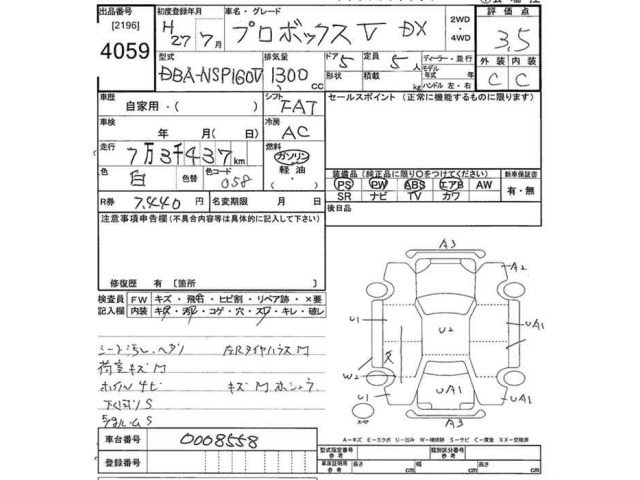 出品番号 初度登録年月 車名・グレード 2WD ・4WD 評価点
[2196] H27年7月 プロボックスV DX 3.5
4059
型式 排気量 ドア 定員 ディーラー・並行 外装 内装
DBA-NSP160V 1300 CC 5 5人 モデル 年式 年 C C
形状 積載 kg ハンドル 左・右
車歴 シフト セールスポイント (正常に機能するものに限ります)
自家用・( ) FAT
車検 冷房
年 月(日) AC
走行 燃料
7万3千437km ガソリン
軽油
色 色替 色コード ・( )
白 058
装備品(純正品に限り○をつけてください) 新車保証書
PS PW ABS エアB AW 有・無
SR ナビ TV カワ
R券 7,440円 名変期限 月 日 後日品
注意事項申告欄(不具合内容等は具体的に記入して下さい)
修復歴 有 [箇所 ]
検査員 FW キズ・飛石・ヒビ割・リペア跡・×要
記入欄 内装 キズ・汚レ・コゲ・穴・スレ・キレ・破レ
シート汚し・ヘタリ
荷室キズM
ホイルサビ キズM
下回りS
A3
A2
U1 U2 UA1
W2
U1 UA1 UA1
A3
A-キズ E-エクボ U-凹み W-補修跡 S-サビ C-腐食 XX-交換済
車台番号 0008558
登録番号
型式指定番号 参考 類別区分番号 参考
車庫証明用 参考 長さ cm 幅 cm 高さ cm